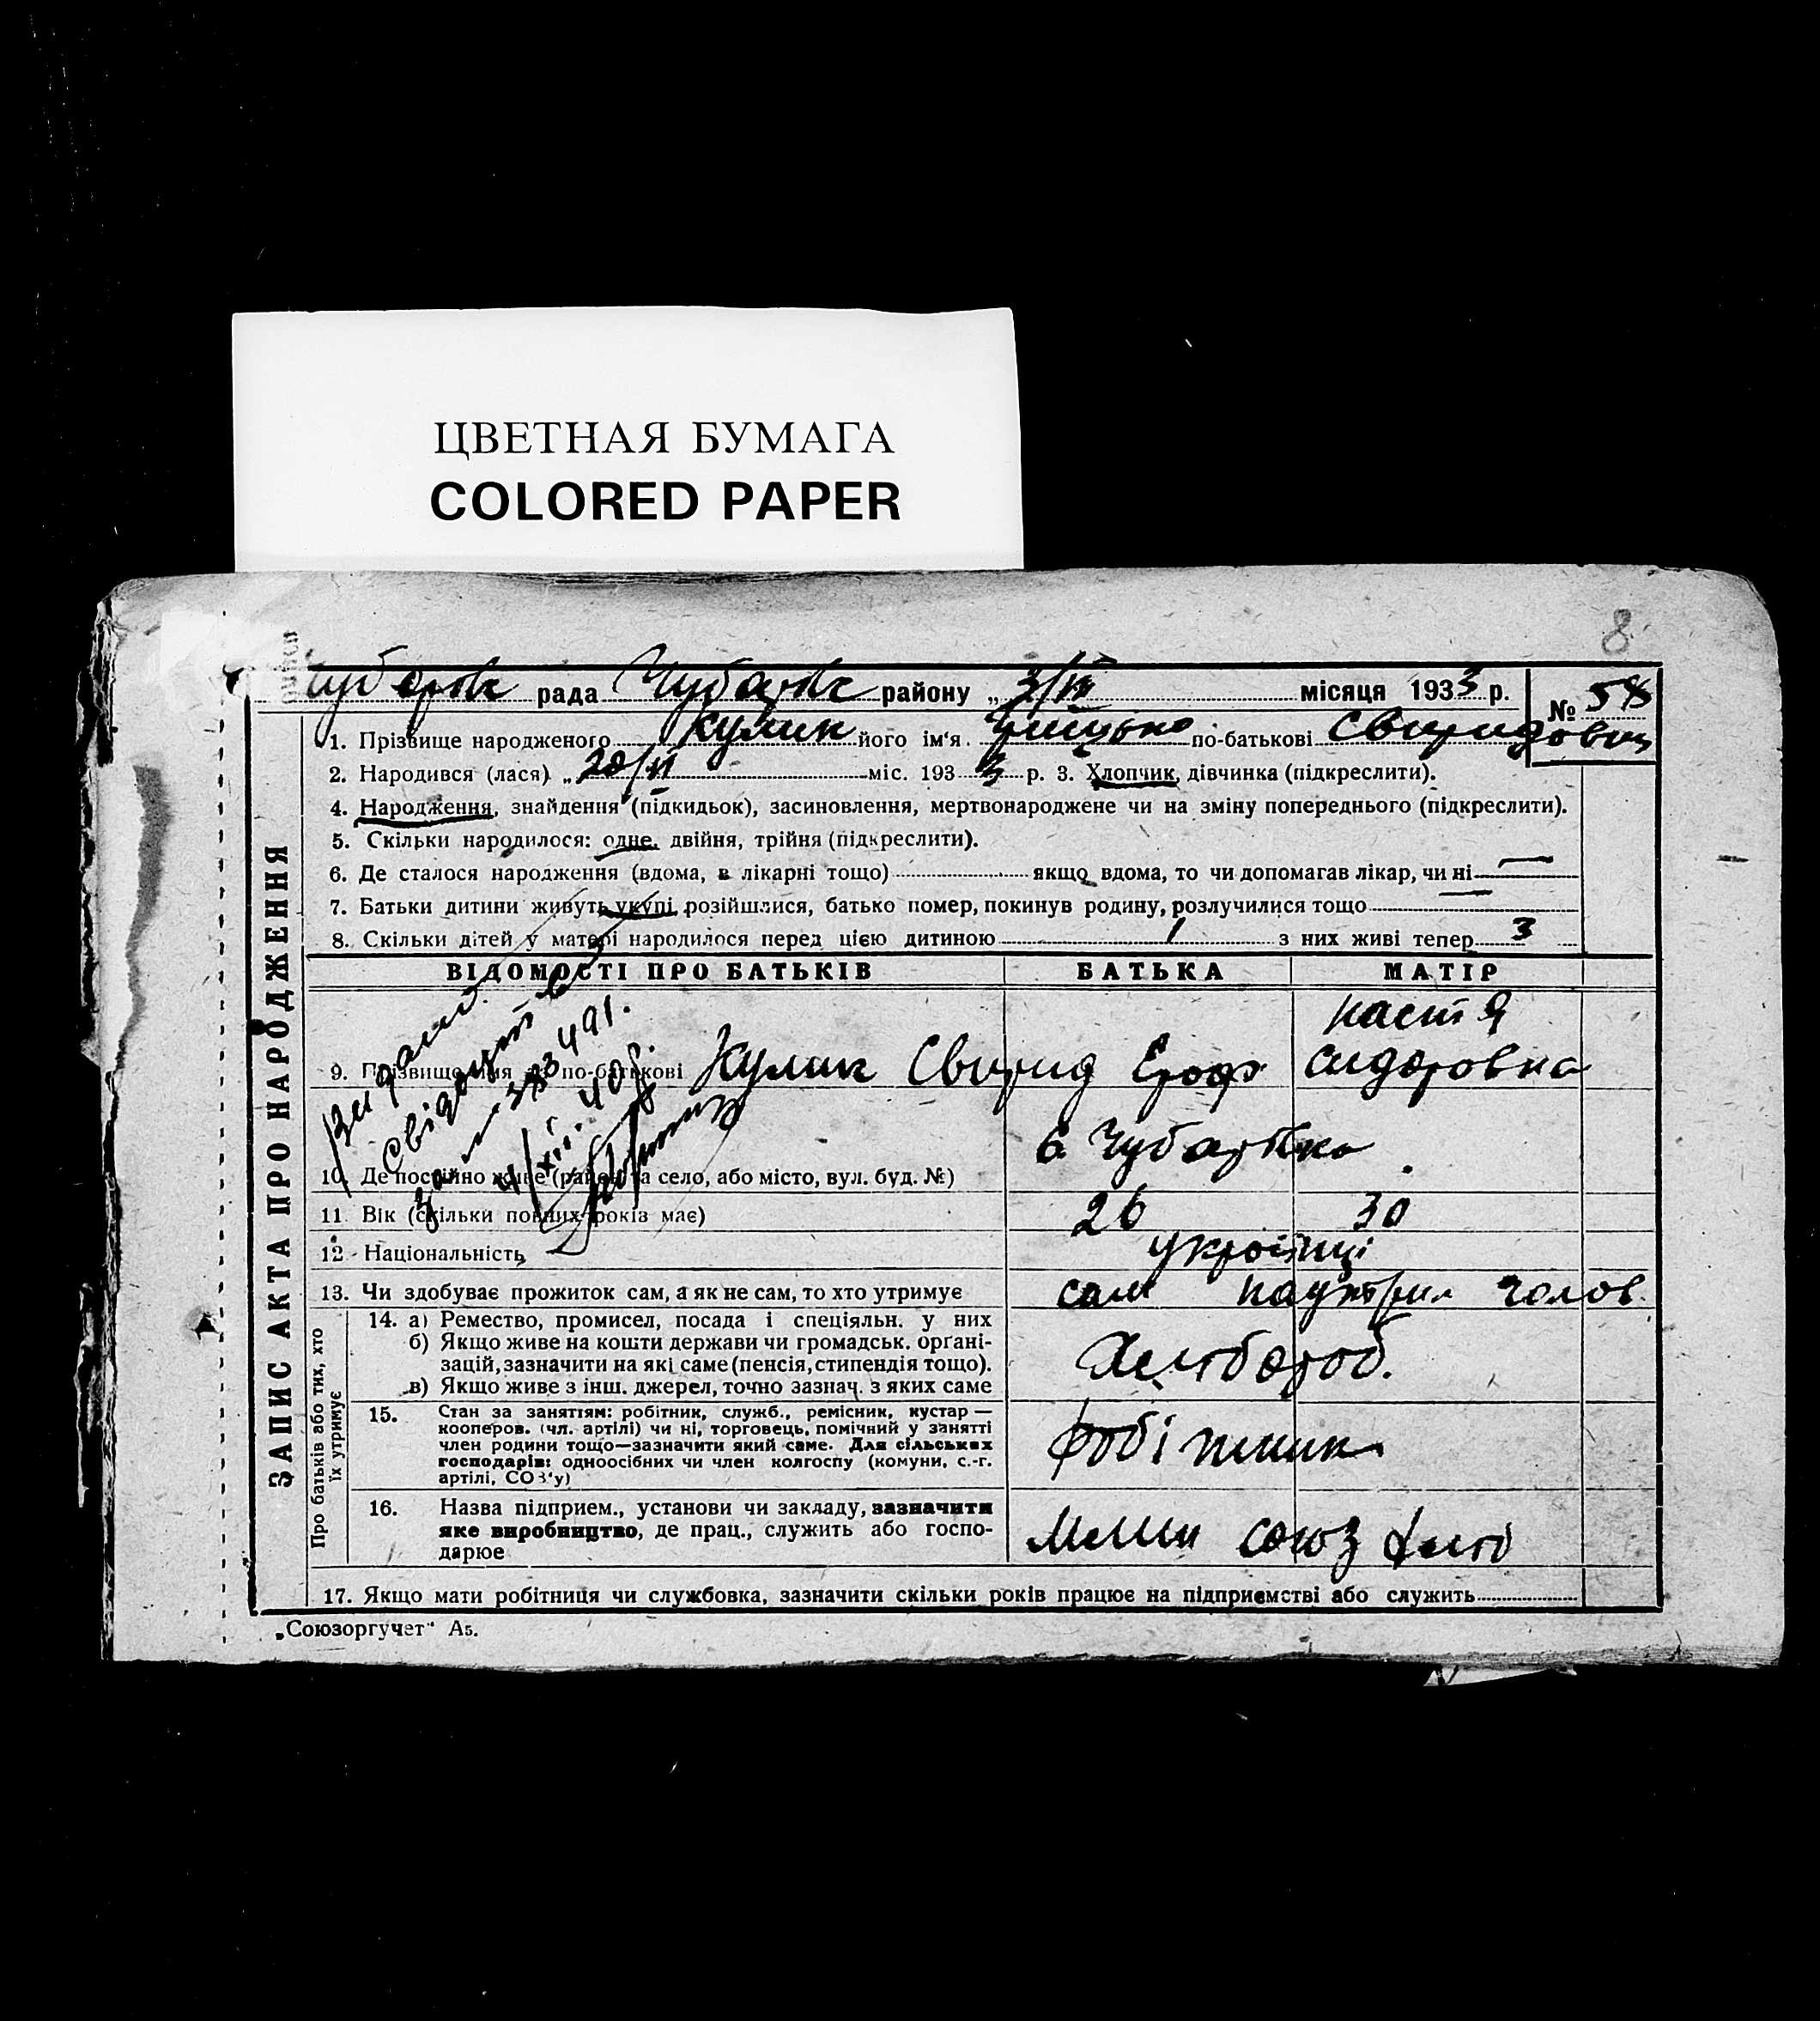 ЦВЕТНАЯ БУМАГА
COLORED PAPER
8
рада района „ 3/ місяця 1933 р.
№ 58
1. Прізвище народженого Кулик його ім'я Грицько по-батькові Свиридович
2. Народився (лася) „20/ міс. 1933 р. 3. Хлопчик, дівчинка (підкреслити).
4. Народження, знайдення (підкидьок), засиновлення, мертвонароджене чи на зміну попереднього (підкреслити).
5. Скільки народилося: одне, двійня, трійня (підкреслити).
6. Де сталося народження (вдома, в лікарні тощо) якщо вдома, то чи допомагав лікар, чи ні —
7. Батьки дитини живуть укупі, розійшлися, батько помер, покинув родину, розлучилися тощо
8. Скільки дітей у матері народилося перед цією дитиною 1 з них живі тепер 3
ВІДОМОСТІ ПРО БАТЬКІВ БАТЬКА МАТІР
9. Прізвище, імя та по-батькові Кулик Свирид Ероф Настя
Сидоровна
10. Де постійно живе (район та село, або місто, вул. буд. №)
11 Вік (скільки повних років має) 26 30
12 Національність українці
13. Чи здобуває прожиток сам, а як не сам, то хто утримує сам голов.
14. а) Ремество, промисел, посада і спеціяльн. у них
б) Якщо живе на кошти держави чи громадськ. орґані-
зацій, зазначити на які саме (пенсія, стипендія тощо).
в) Якщо живе з інш. джерел, точно зазнач. з яких саме
Хлібороб.
15. Стан за заняттям: робітник, служб., ремісник, кустар —
кооперов. (чл. артілі) чи ні, торговець, помічний у занятті
член родини тощо—зазначити який саме. Для сільських
господарів: одноосібних чи член колгоспу (комуни, с.-г.
артілі, СОЗ'у)
робітник
16. Назва підприєм., установи чи закладу, зазначити
яке виробництво, де прац., служить або госпо-
дарює
Млин союз хліб
17. Якщо мати робітниця чи службовка, зазначити скільки років працює на підприємстві або служить
ЗАПИС АКТА ПРО НАРОДЖЕННЯ
Про батьків або тих, хто
їх утримує
Видано
Свідоцтво
„Союзоргучет" А5.